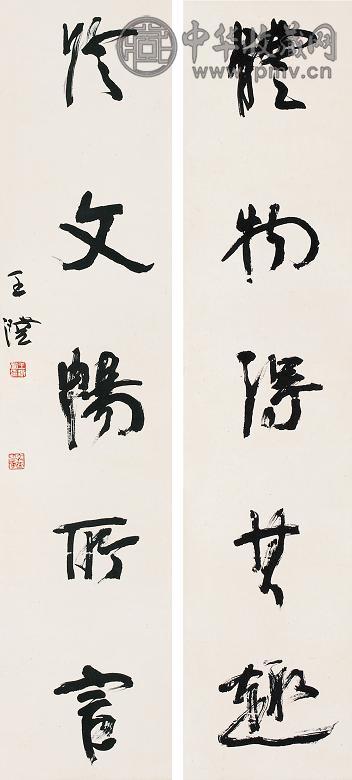 中华收藏网
www.pmv.cn
體物得其趣
於文暢所言
王澄